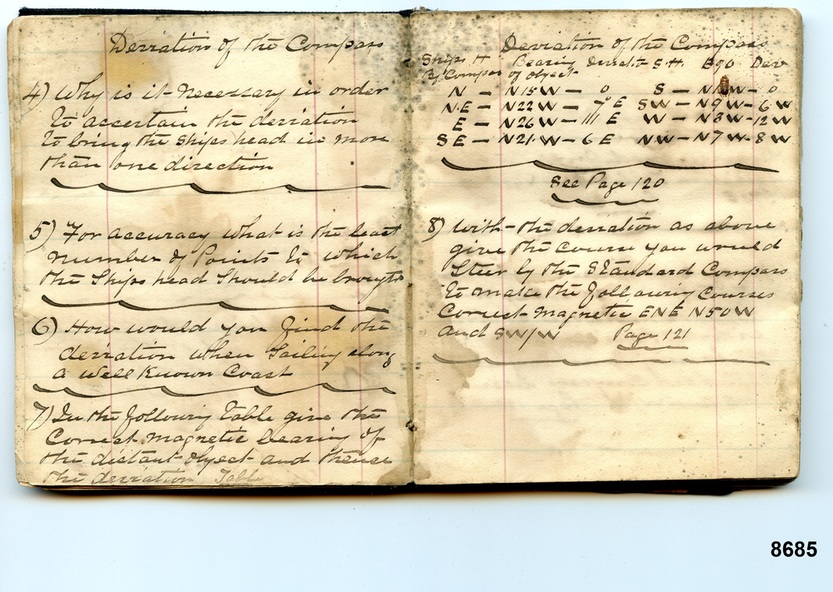 Deviation of the Compass
4) Why is it necessary in order
to accertain the deviation
to bring the ships head in more
than one direction
5) For accuracy what is the least
number of Points to which
the Ships head Should be brought
6) How would you find the
deviation when Sailing along
a well known Coast
7) In the following Table give the
Correct magnetic bearing of
the distant object and thence
the deviation Table
Deviation of the Compass
Ships H Bearing S.H. Brg Dev
By Compass of object
N - N15W - 0 S - W - 0
NE - N22W - 7 E SW - N9W - 6 W
E - N26W - 11 E W - N3W - 12 W
SE - N21W - 6 E NW - N7W - 8 W
See Page 120
8) With the deviation as above
give the Course you would
Steer by the Standard Compass
to make the following Courses
Correct magnetic ENE N50W
and SW/W Page 121
8685